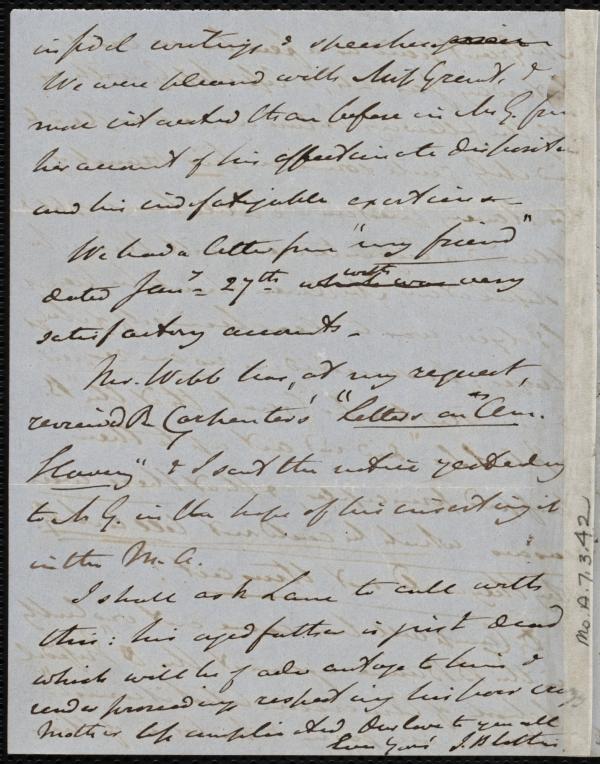 infidel writings & speeches
We were pleased with Miss Grant, &
more interested than before in Mr G. from
her account of his affectionate disposition
and his indefatigable exertions —
We had a letter from "my friend"
dated Jany 27th with very
satisfactory accounts —
Mr. Webb has, at my request,
reviewed R Carpenter's "Letters on Am.
Slavery" & I sent the notice yesterday
to Mr G. in the hope of his inserting it
in the M. A.
I shall ask Lane to call with
this: his aged father is just dead
which will be of advantage to him &
render proceedings respecting his poor crazy
Mother less complicated. Our love to you all
Ever yours J. B
Mo. A. 7. 3. 42